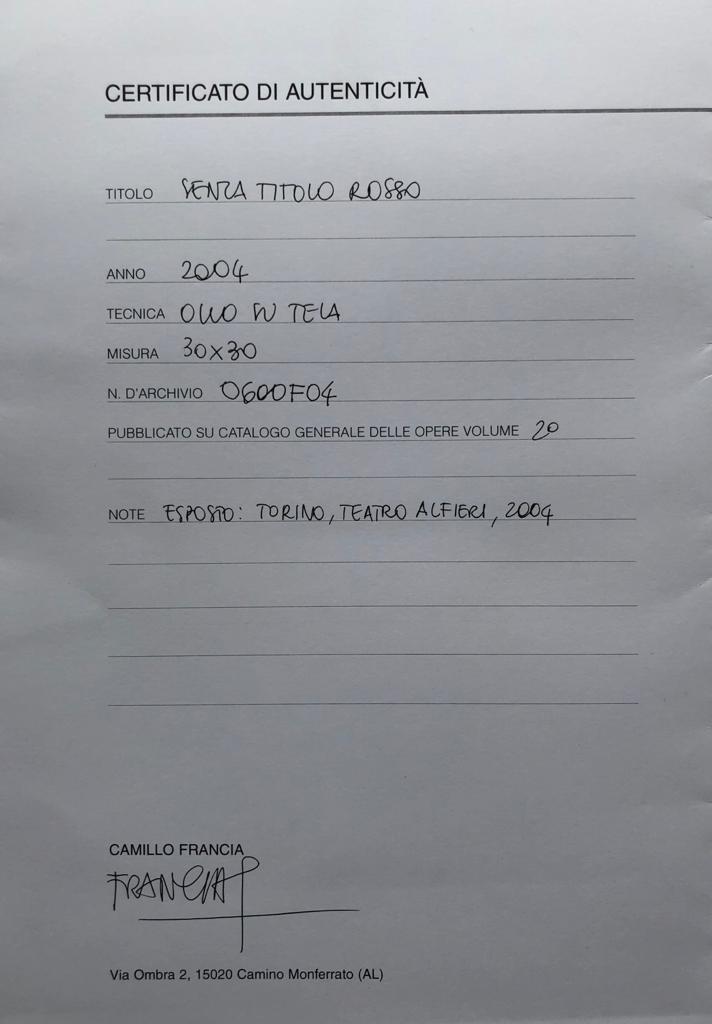 CERTIFICATO DI AUTENTICITÀ
TITOLO SENZA TITOLO ROSSO
ANNO 2004
TECNICA OLIO SU TELA
MISURA 30X30
N. D'ARCHIVIO 0600F04
PUBBLICATO SU CATALOGO GENERALE DELLE OPERE VOLUME 20
NOTE ESPOSTO: TORINO, TEATRO ALFIERI, 2004
CAMILLO FRANCIA
FRANCIA
Via Ombra 2, 15020 Camino Monferrato (AL)